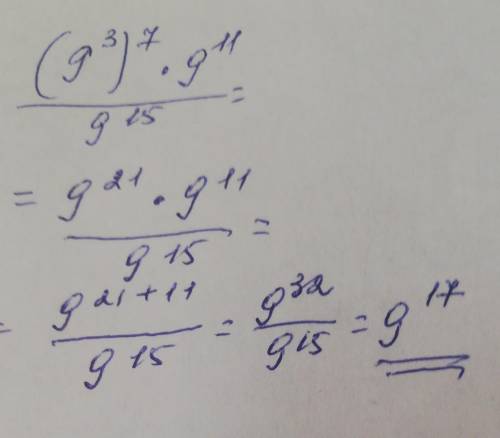 (9^3)^7 · 9^11 / 9^15 =
= 9^21 · 9^11 / 9^15 =
= 9^21+11 / 9^15 = 9^32 / 9^15 = 9^17